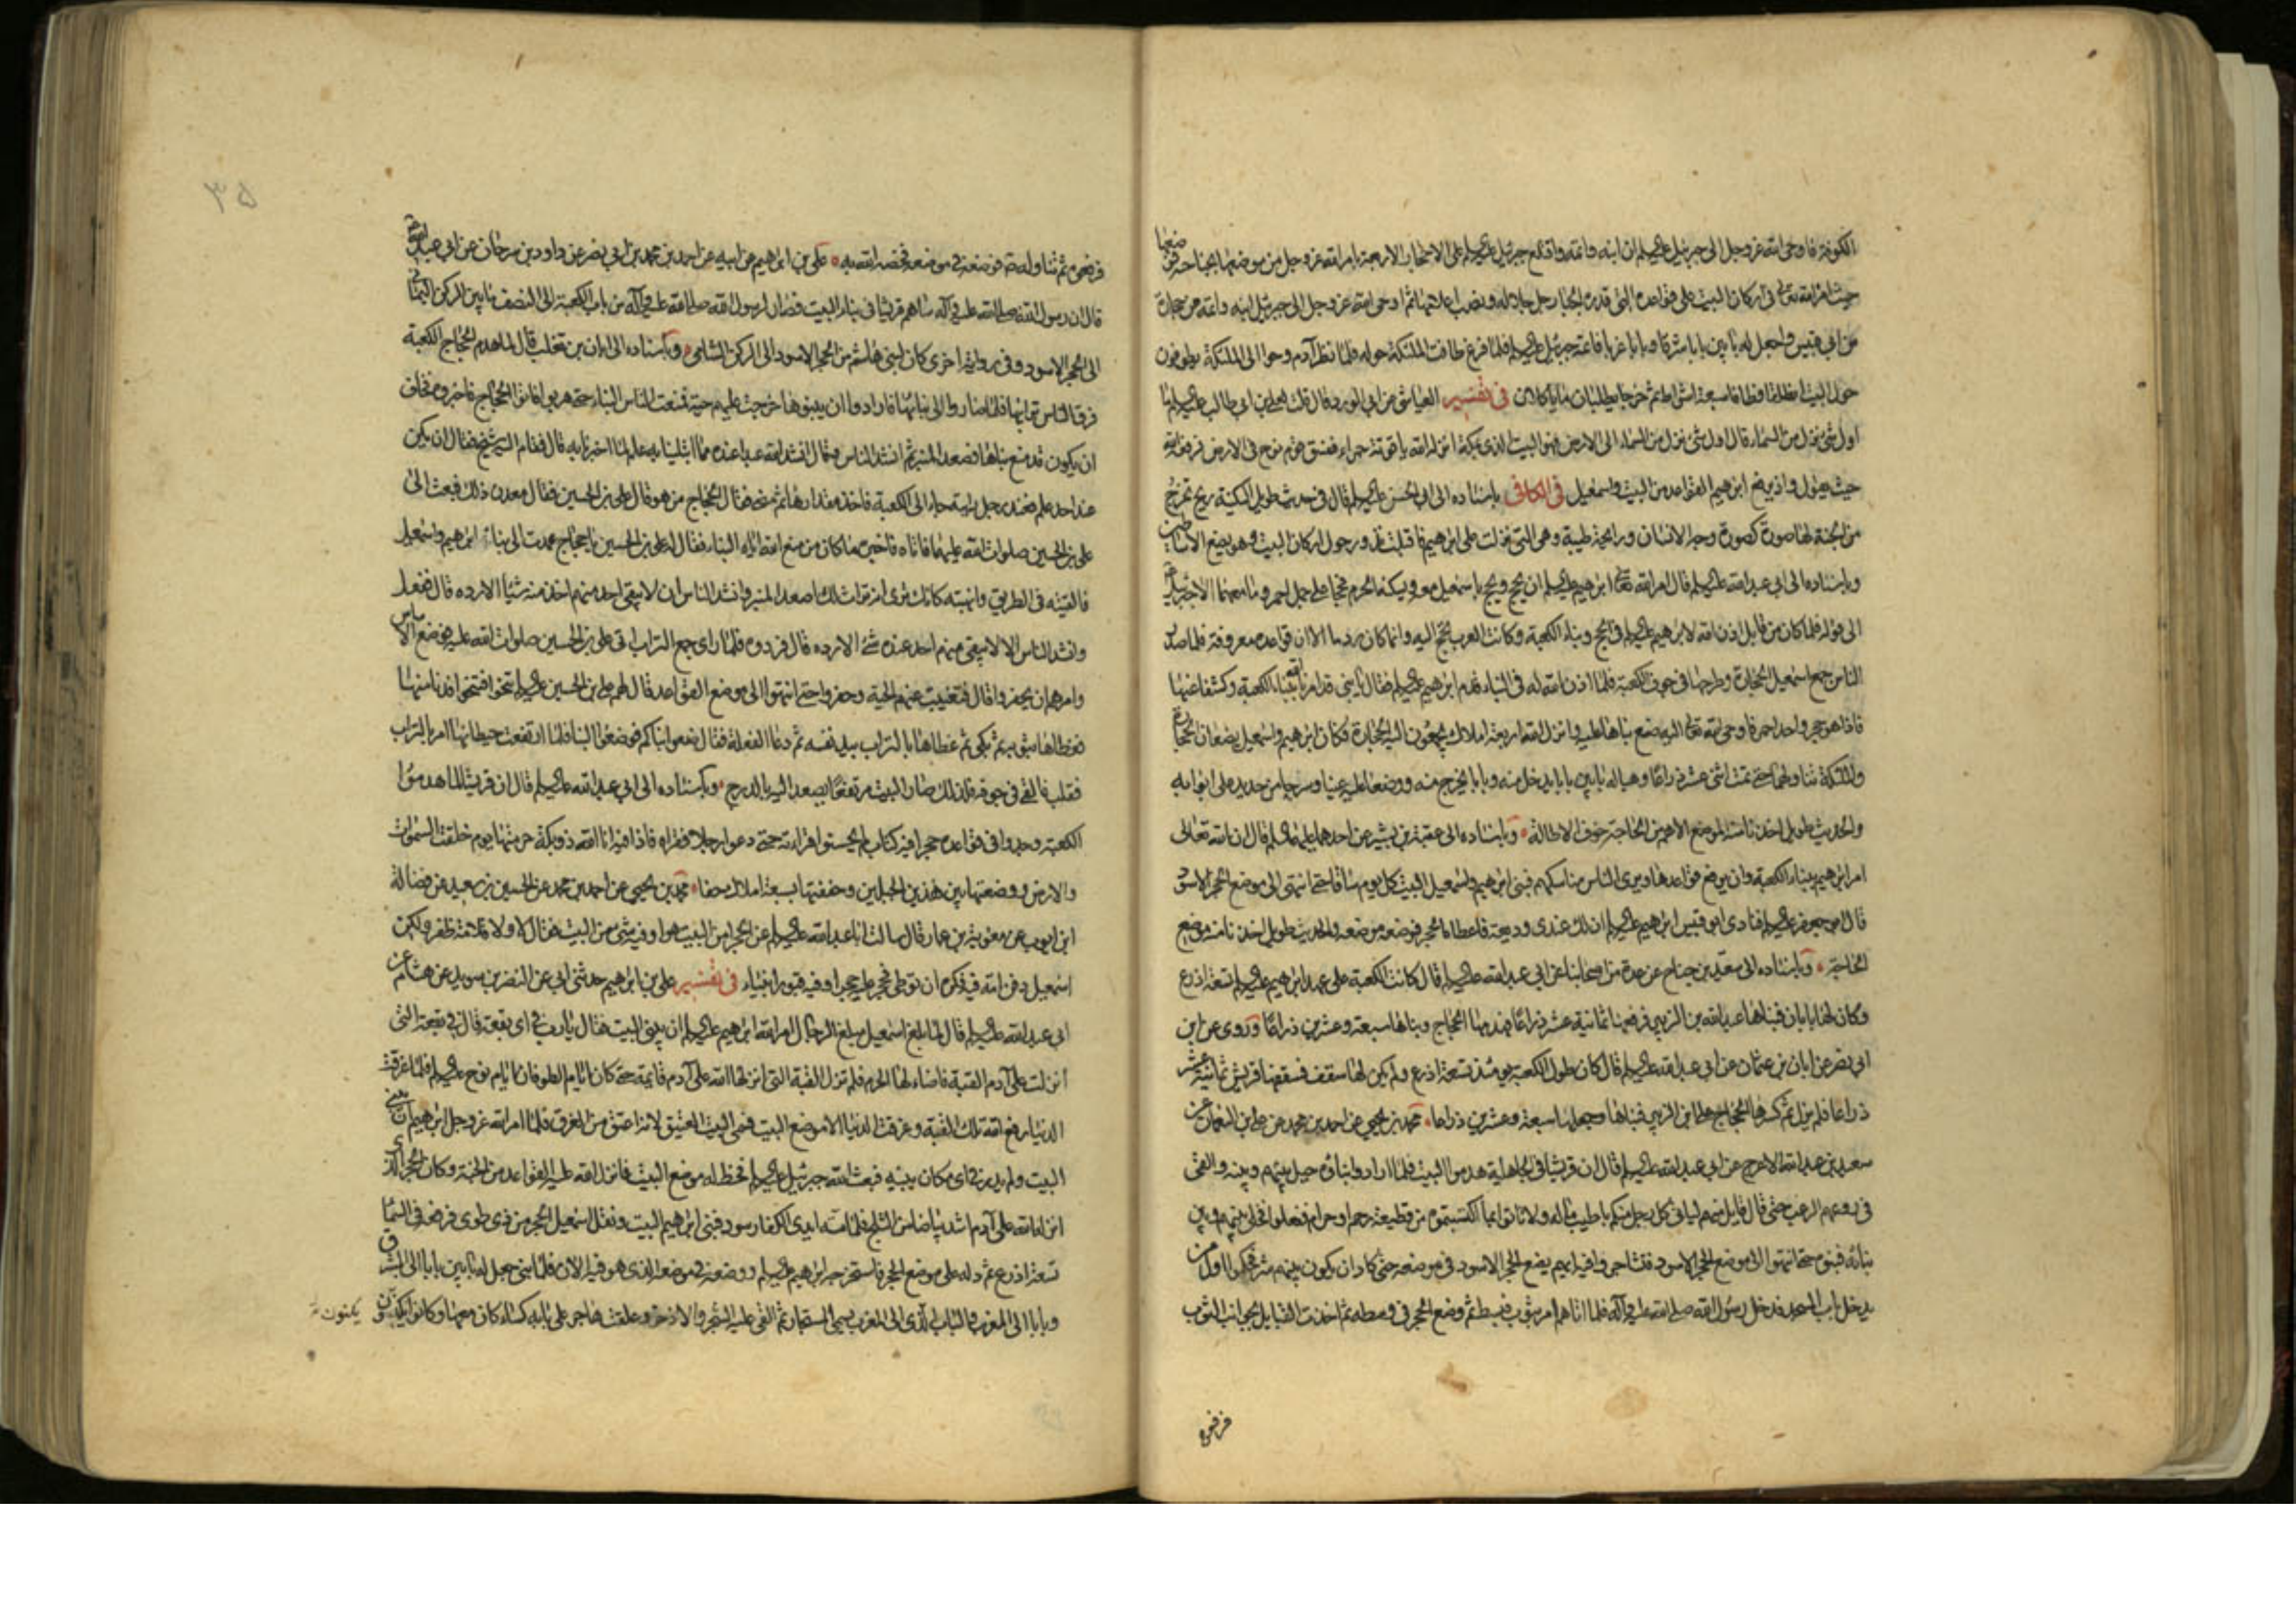 الكوفة فاوحى الله عز وجل الى جبرئيل عليه السلم ان ابنه واتمه واقتلع جبرئيل عليه السلم على الاحجار الاربعة بامر الله عز وجل من موضعها بجناحه فوضعها
حيث امر الله تعالى في اركان البيت على قواعده التي قدره الجبار جل جلاله ونصب اعلامها ثم اوحى الله عز وجل الى جبرئيل ابنه واتمه من حجارة
من ابي قبيس واجعل له بابين بابا شرقا وبابا غربا فاتمه جبرئيل عليه السلم فلما فرغ طافت الملئكة حوله فلما نظر آدم وحوا الى الملئكة يطوفون
حول البيت انطلقا فطافا سبعة اشواط ثم خرجا يطلبان ما ياكلان في تفسير العياشي عن ابي الورد قال قلت لعلي بن ابي طالب عليه السلم ما
اول شيء نزل من السماء قال اول شيء نزل من السماء الى الارض فهو البيت الذي بمكة انزله الله ياقوتة حمراء ففسق قوم نوح في الارض فرفعه الله
حيث يقول واذ يرفع ابرهيم القواعد من البيت واسمعيل في الكافي باسناده الى ابي الحسن عليه السلم قال في حديث طويل السكينة ريح تخرج
من الجنة لها صورة كصورة وجه الانسان ورايحة طيبة وهي التي نزلت على ابرهيم فاقبلت تدور حول اركان البيت وهو يضع الاساطين
وباسناده الى ابي عبد الله عليه السلم قال امر الله تعالى ابرهيم عليه السلم ان يحج ويحج باسمعيل معه ويسكنه الحرم فحجا على جمل احمر وما معهما الا جبرئيل
الى قوله فلما كان من قابل اذن الله لابرهيم عليه السلم في الحج وبناء الكعبة وكانت العرب تحج اليه وانما كان ردما الا ان قواعده معروفة فلما صدر
الناس جمع اسمعيل الحجارة وطرحها في جوف الكعبة فلما اذن الله له في البناء قدم ابرهيم عليه السلم فقال يا بني قد امرنا الله ببناء الكعبة وكشفا عنها
فاذا هو حجر واحد احمر فاوحى الله تعالى اليه ضع بناها عليه وانزل الله اربعة املاك يجمعون اليه الحجارة فكان ابرهيم واسمعيل يضعان الحجارة
والملئكة تناولهما حتى تمت اثنى عشر ذراعا وهيا له بابين بابا يدخل منه وبابا يخرج منه ووضعا عليه عتبا وسرجا من حديد على ابوابه
والحديث طويل اخذنا منه الموضع الاهم من الحاجة خوف الاطالة وباسناده الى عقبة بن بشير عن احدهما عليهما السلم قال ان الله تعالى
امر ابرهيم ببناء الكعبة وان يرفع قواعدها ويرى الناس مناسكهم فبنى ابرهيم واسمعيل البيت كل يوم ساقا حتى انتهى الى موضع الحجر الاسود
قال ابو جعفر عليه السلم فنادى ابو قبيس ابرهيم عليه السلم ان لك عندي وديعة فاعطاه الحجر فوضعه موضعه والحديث طويل اخذنا منه موضع
الحاجة وباسناده الى سعيد بن جناح عن عدة من اصحابنا عن ابي عبد الله عليه السلم قال كانت الكعبة على عهد ابرهيم عليه السلم تسعة اذرع
وكان لها بابان فبناها عبد الله بن الزبير فرفعها ثمانية عشر ذراعا فهدمها الحجاج وبناها سبعة وعشرين ذراعا وروى عن ابن
ابي نصر عن ابان بن عثمان عن ابي عبد الله عليه السلم قال كان طول الكعبة يومئذ تسعة اذرع ولم يكن لها سقف فسقفها قريش ثمانية عشر
ذراعا فلم يزل ثم كسرها الحجاج على ابن الزبير فبناها وجعلها سبعة وعشرين ذراعا محمد بن يحيى عن احمد بن محمد عن علي بن النعمان عن
سعيد بن عبد الله الاعرج عن ابي عبد الله عليه السلم قال ان قريشا في الجاهلية هدموا البيت فلما ارادوا بناؤه حيل بينهم وبينه والقى
في روعهم الرعب حتى قال قايل منهم لياتي كل رجل منكم باطيب ماله ولا تاتوا بما اكتسبتموه من قطيعة رحم او حرام ففعلوا فخلى بينهم وبين
بنائه فبنوه حتى انتهوا الى موضع الحجر الاسود فتشاجروا فيه ايهم يضع الحجر الاسود في موضعه حتى كاد ان يكون بينهم شر فحكموا اول من
يدخل باب المسجد فدخل رسول الله صلى الله عليه وآله فلما اتاهم امر بثوب فبسط ثم وضع الحجر في وسطه ثم اخذت القبايل بجوانب الثوب
فرفعوه
٣٥
فرفعوه ثم تناوله ص فوضعه في موضعه فخصه الله به علي بن ابرهيم عن ابيه عن احمد بن محمد بن ابي نصر عن داود بن سرحان عن ابي عبد الله
قال ان رسول الله صلى الله عليه وآله ساهم قريشا في بناء البيت فصار لرسول الله صلى الله عليه وآله من باب الكعبة الى النصف ما بين الركن اليماني
الى الحجر الاسود وفي رواية اخرى كان لبني هاشم من الحجر الاسود الى الركن الشامي وباسناده الى ابان بن تغلب قال لما هدم الحجاج الكعبة
فرق الناس ترابها فلما صاروا الى بنائها فارادوا ان يبنوها خرجت عليهم حية فمنعت الناس البناء حتى هربوا فاتوا الحجاج فاخبروه فخاف
ان يكون قد منع بناها فصعد المنبر ثم انشد الناس وقال انشد الله عبدا عنده مما ابتلينا به علم لما اخبرنا به قال فقام اليه شيخ فقال ان يكن
عند احد علم فعند رجل رايته جاء الى الكعبة فاخذ مقدارها ثم مضى فقال الحجاج من هو قال علي بن الحسين فقال معدن ذلك فبعث الى
علي بن الحسين صلوات الله عليهما فاتاه فاخبره ما كان من منع الله اياه البناء فقال له علي بن الحسين يا حجاج عمدت الى بناء ابرهيم واسمعيل
فالقيته في الطريق وانتهبته كانك ترى انه تراث لك اصعد المنبر وانشد الناس ان لا يبقى احد منهم اخذ منه شيئا الا رده قال ففعل
وانشد الناس الا لا يبقى منهم احد عنده شيء الا رده قال فردوه فلما راى جمع التراب اتى علي بن الحسين صلوات الله عليه فوضع الاساس
وامرهم ان يحفروا قال فتغيبت عنهم الحية وحفروا حتى انتهوا الى موضع القواعد قال لهم علي بن الحسين عليه السلم تنحوا فتنحوا فدنا منها
فغطاها بثوبه ثم بكى ثم غطاها بالتراب بيد نفسه ثم دعا الفعلة فقال ضعوا بناكم فوضعوا البناء فلما ارتفعت حيطانها امر بالتراب
فقلب فالقي في جوفه فلذلك صار البيت مرتفعا يصعد اليه بالدرج وباسناده الى ابي عبد الله عليه السلم قال ان قريشا لما هدموا
الكعبة وجدوا في قواعده حجرا فيه كتاب لم يحسنوا قراءته حتى دعوا رجلا فقراه فاذا فيه انا الله ذو بكة حرمتها يوم خلقت السموات
والارض ووضعتها بين هذين الجبلين وحففتها بسبعة املاك حفا محمد بن يحيى عن احمد بن محمد عن الحسين بن سعيد عن فضالة
ابن ايوب عن معوية بن عمار قال سالت ابا عبد الله عليه السلم عن الحجر امن البيت هو او فيه شيء من البيت فقال لا ولا قلامة ظفر ولكن
اسمعيل دفن امه فيه فكره ان توطى فحجر عليه حجرا وفيه قبور انبياء في تفسير علي بن ابرهيم حدثني ابي عن النضر بن سويد عن هشام عن
ابي عبد الله عليه السلم قال لما بلغ اسمعيل مبلغ الرجال امر الله ابرهيم عليه السلم ان يبني البيت فقال يا رب في اي بقعة قال في بقعة التي
انزلت على آدم القبة فاضاء لها الحرم فلم تزل القبة التي انزلها الله على آدم قائمة حتى كان ايام الطوفان ايام نوح عليه السلم فلما غرقت
الدنيا رفع الله تلك القبة وغرقت الدنيا الا موضع البيت فسمي البيت العتيق لانه اعتق من الغرق فلما امر الله عز وجل ابرهيم ان يبني
البيت ولم يدر في اي مكان يبنيه فبعث الله جبرئيل عليه السلم فخط له موضع البيت فانزل الله عليه القواعد من الجنة وكان الحجر الذي
انزله الله على آدم اشد بياضا من الثلج فلما مسته ايدي الكفار اسود فبنى ابرهيم البيت ونقل اسمعيل الحجر من ذي طوى فرفعه في السماء
تسعة اذرع ثم دله على موضع الحجر فاستخرجه ابرهيم عليه السلم ووضعه في موضعه الذي هو فيه الان فلما بنى جعل له بابين بابا الى الشرق
وبابا الى المغرب والباب الذي الى المغرب يسمى المستجار ثم القى عليه الشجر والاذخر وعلقت هاجر على بابه كساء كان معها وكانوا يكنون
يكنون